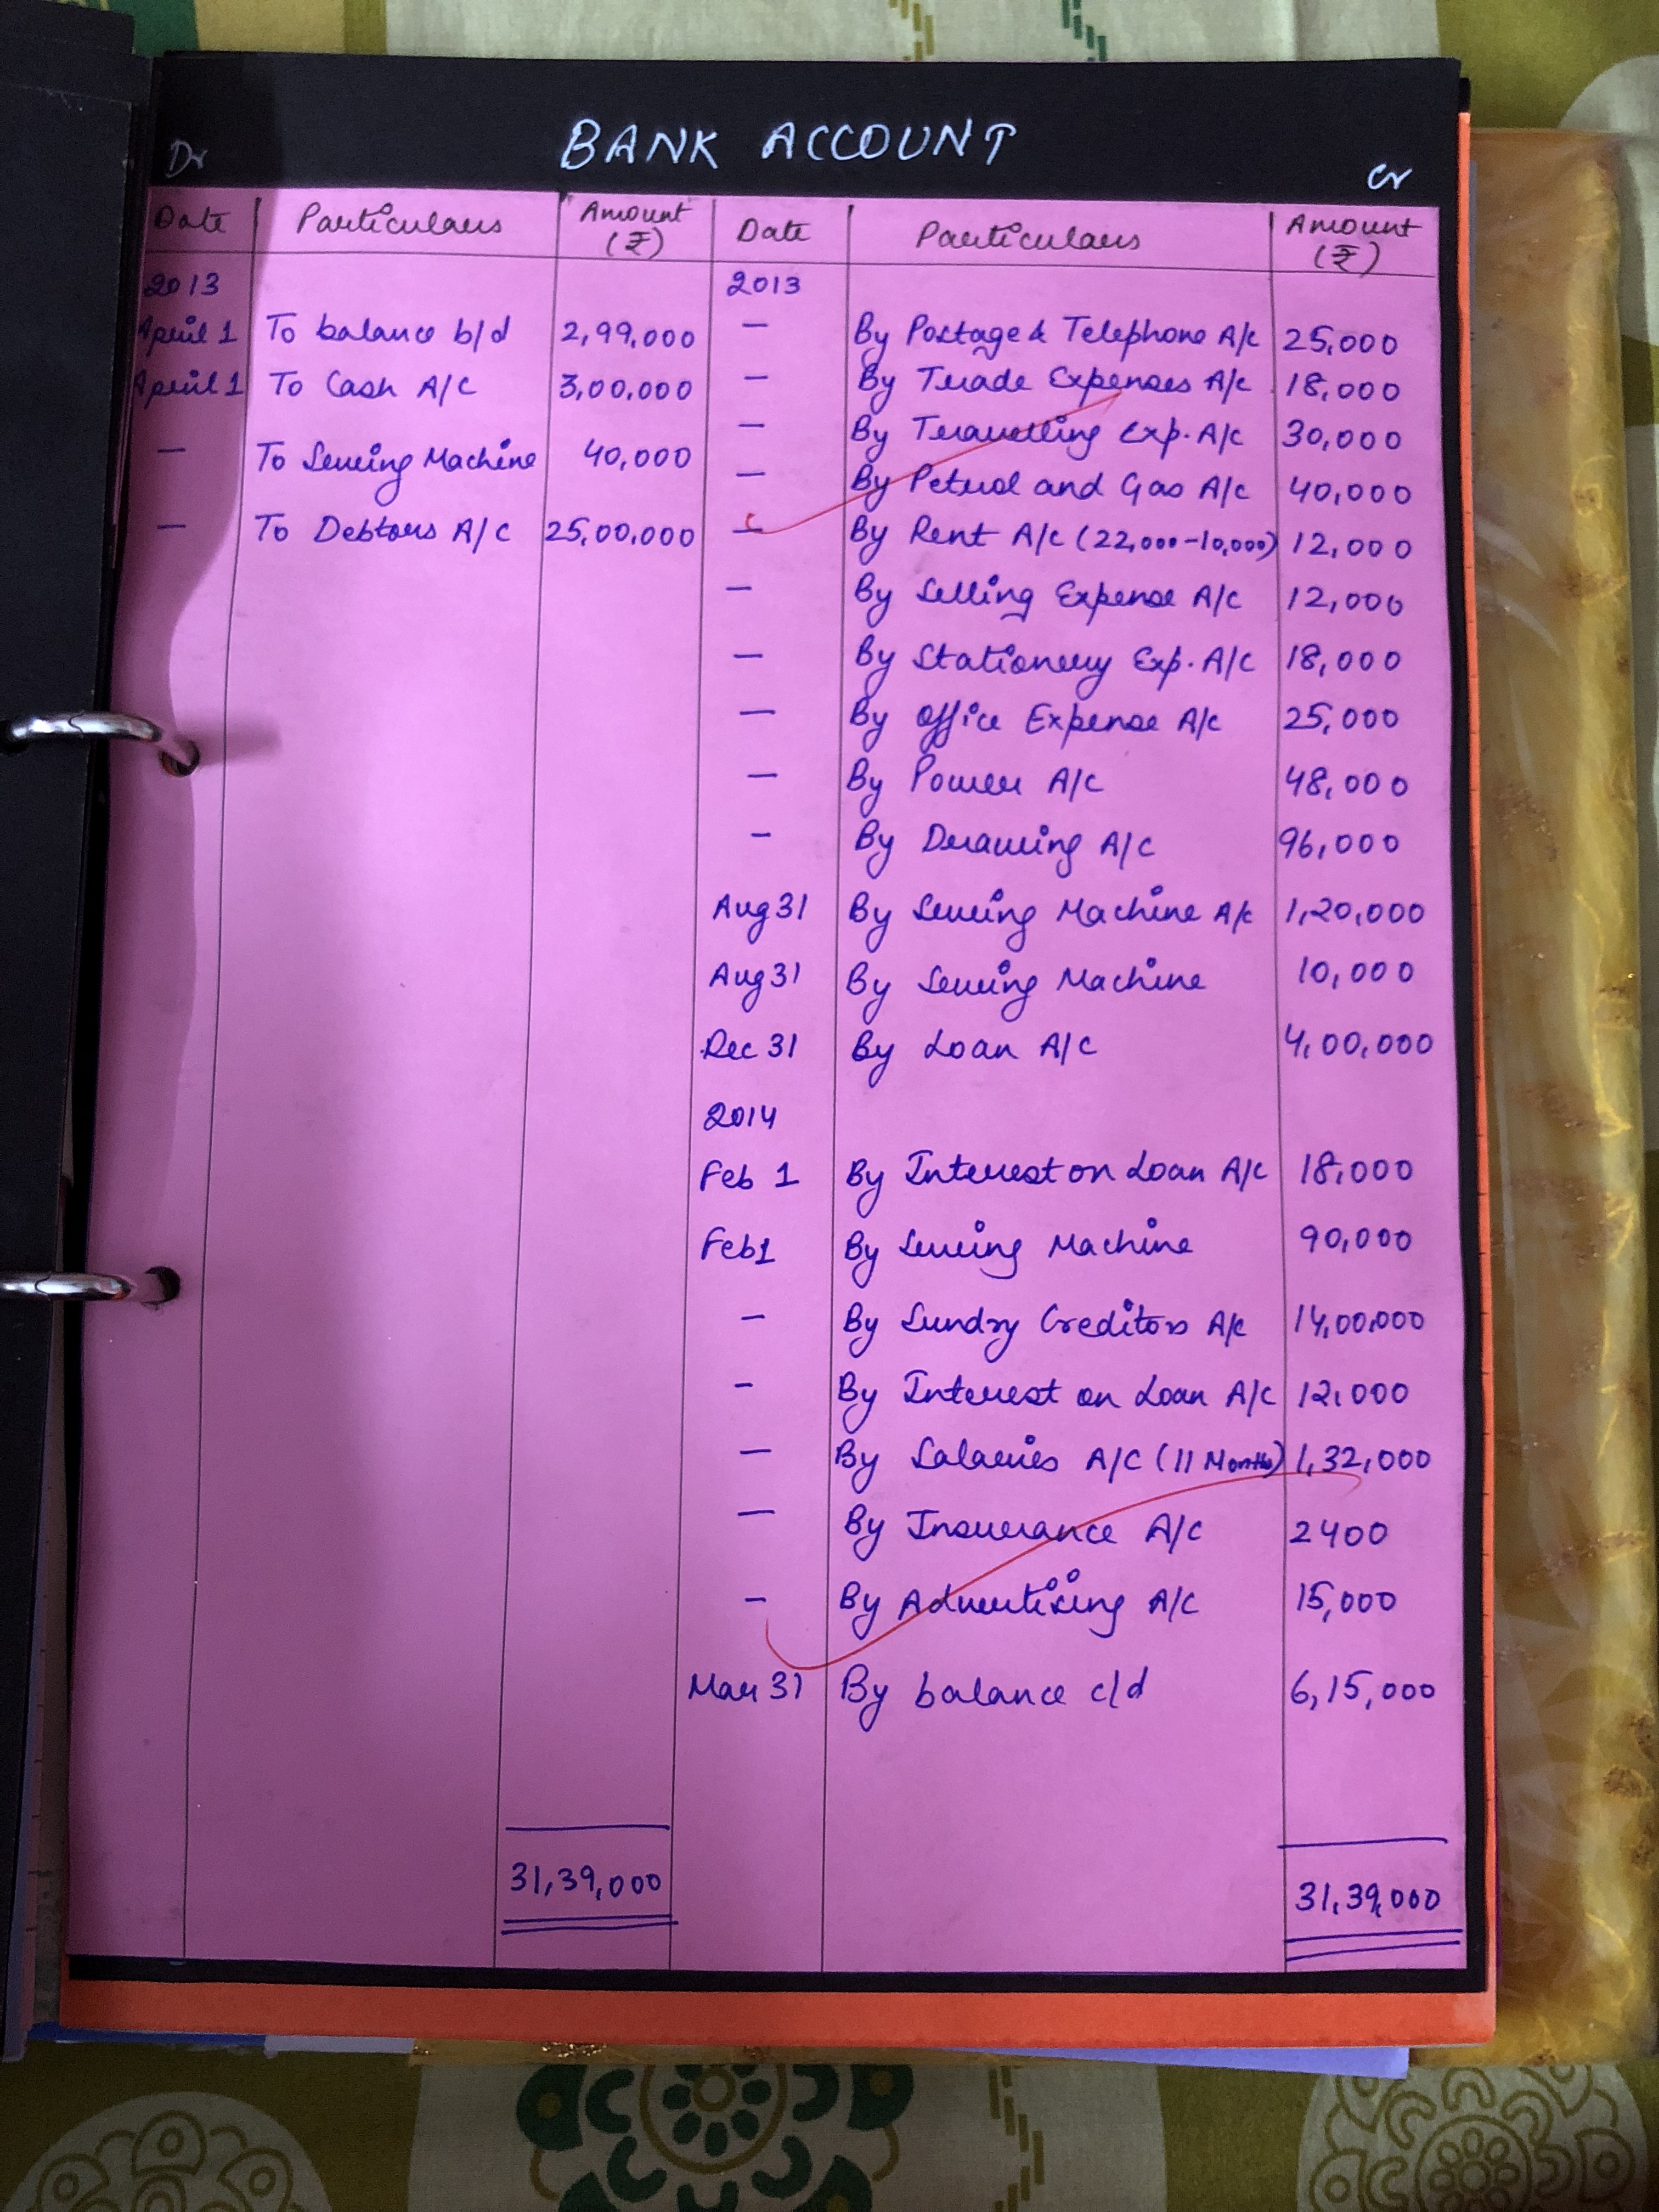 BANK ACCOUNT
Dr Cr
Date Particulars Amount (₹) Date Particulars Amount (₹)
2013 2013
April 1 To balance b/d 2,99,000 — By Postage & Telephone A/c 25,000
April 1 To Cash A/C 3,00,000 — By Trade Expenses A/c 18,000
— By Travelling Exp. A/c 30,000
— To Sewing Machine 40,000 — By Petrol and Gas A/c 40,000
— To Debtors A/C 25,00,000 — By Rent A/c (22,000-10,000) 12,000
— By Selling Expense A/c 12,000
— By Stationery Exp. A/C 18,000
— By Office Expense A/c 25,000
— By Power A/c 48,000
- By Drawing A/C 96,000
Aug 31 By Sewing Machine A/c 1,20,000
Aug 31 By Sewing Machine 10,000
Dec 31 By Loan A/C 4,00,000
2014
Feb 1 By Interest on Loan A/c 18,000
Feb 1 By Sewing Machine 90,000
- By Sundry Creditors A/c 14,00,000
- By Interest on Loan A/C 12,000
— By Salaries A/C (11 Months) 1,32,000
— By Insurance A/C 2400
- By Advertising A/C 15,000
Mar 31 By balance c/d 6,15,000
31,39,000 31,39,000